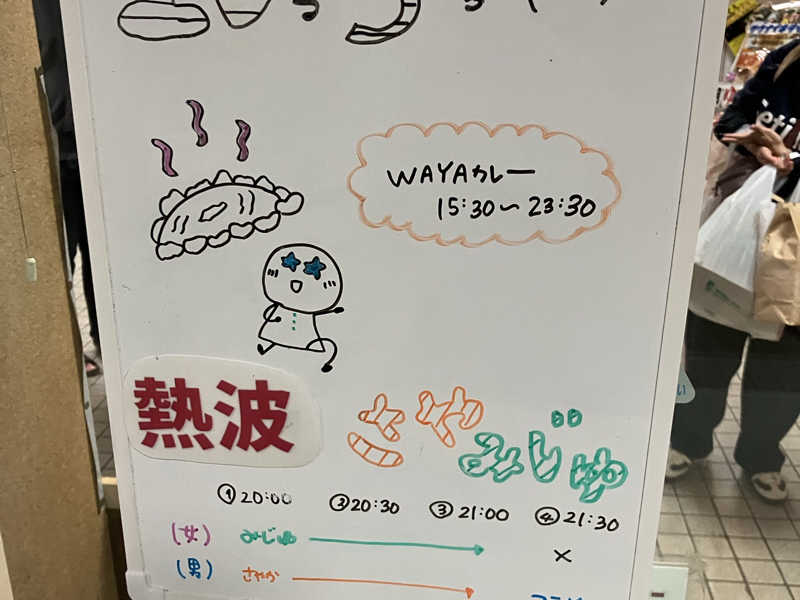 WAYAカレー
15:30〜23:30
熱波
さやか
みじゅ
①20:00 ②20:30 ③21:00 ④21:30
(女) みじゅ ×
(男) さやか